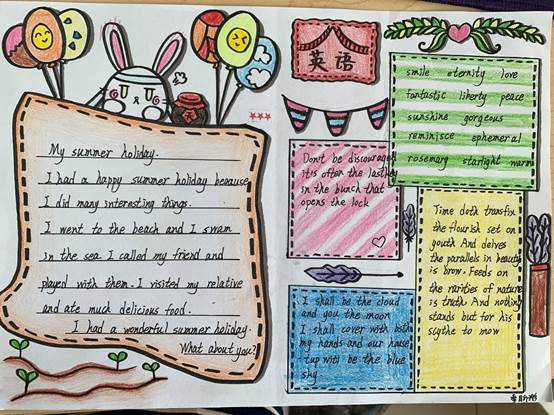 My summer holiday.
I had a happy summer holiday because
I did many interesting things.
I went to the beach and I swam
in the sea. I called my friend and
played with them. I visited my relative
and ate much delicious food.
I had a wonderful summer holiday.
What about you?
英语
smile eternity love
fantastic liberty peace
sunshine gorgeous
reminisce ephemeral
rosemary starlight warm
Don't be discouraged
it is often the last key
in the bunch that
opens the lock
Time doth transfix
the flourish set on
youth And delves
the parallels in beauty
is brow. Feeds on
the rarities of nature
is truth And nothing
stands but for his
scythe to mow
I shall be the cloud
and you the moon
I shall cover with both
my hands and our house
tup will be the blue
shy